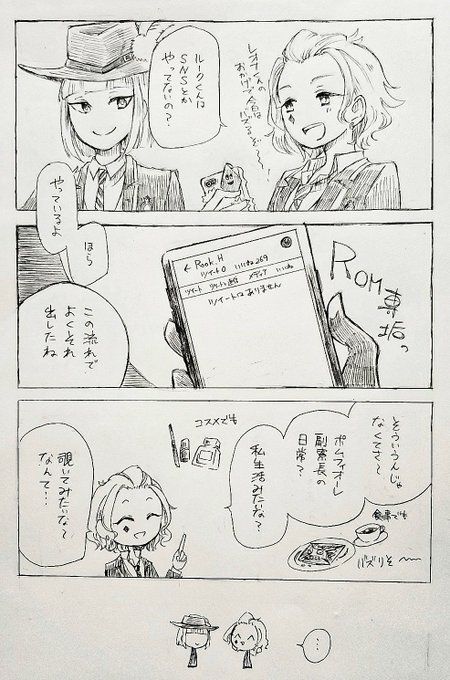 レオナくんの
おかげで今日は
バズるぞ〜〜!
ルークくんは
SNSとか
やってないの?
やっているよ
ほら
← Rook.H
ツイート0 いいね269
ツイート ツイートと返信 メディア いいね
ツイートはありません
ROM専垢っ
この流れで
よくそれ
出したね
そういうんじゃ
なくてさ〜
ポムフィオーレ
副寮長の
日常?
私生活みたいな?
食事でも
コスメでも
バズりそ〜〜
覗いてみたいな〜
なんて…
…